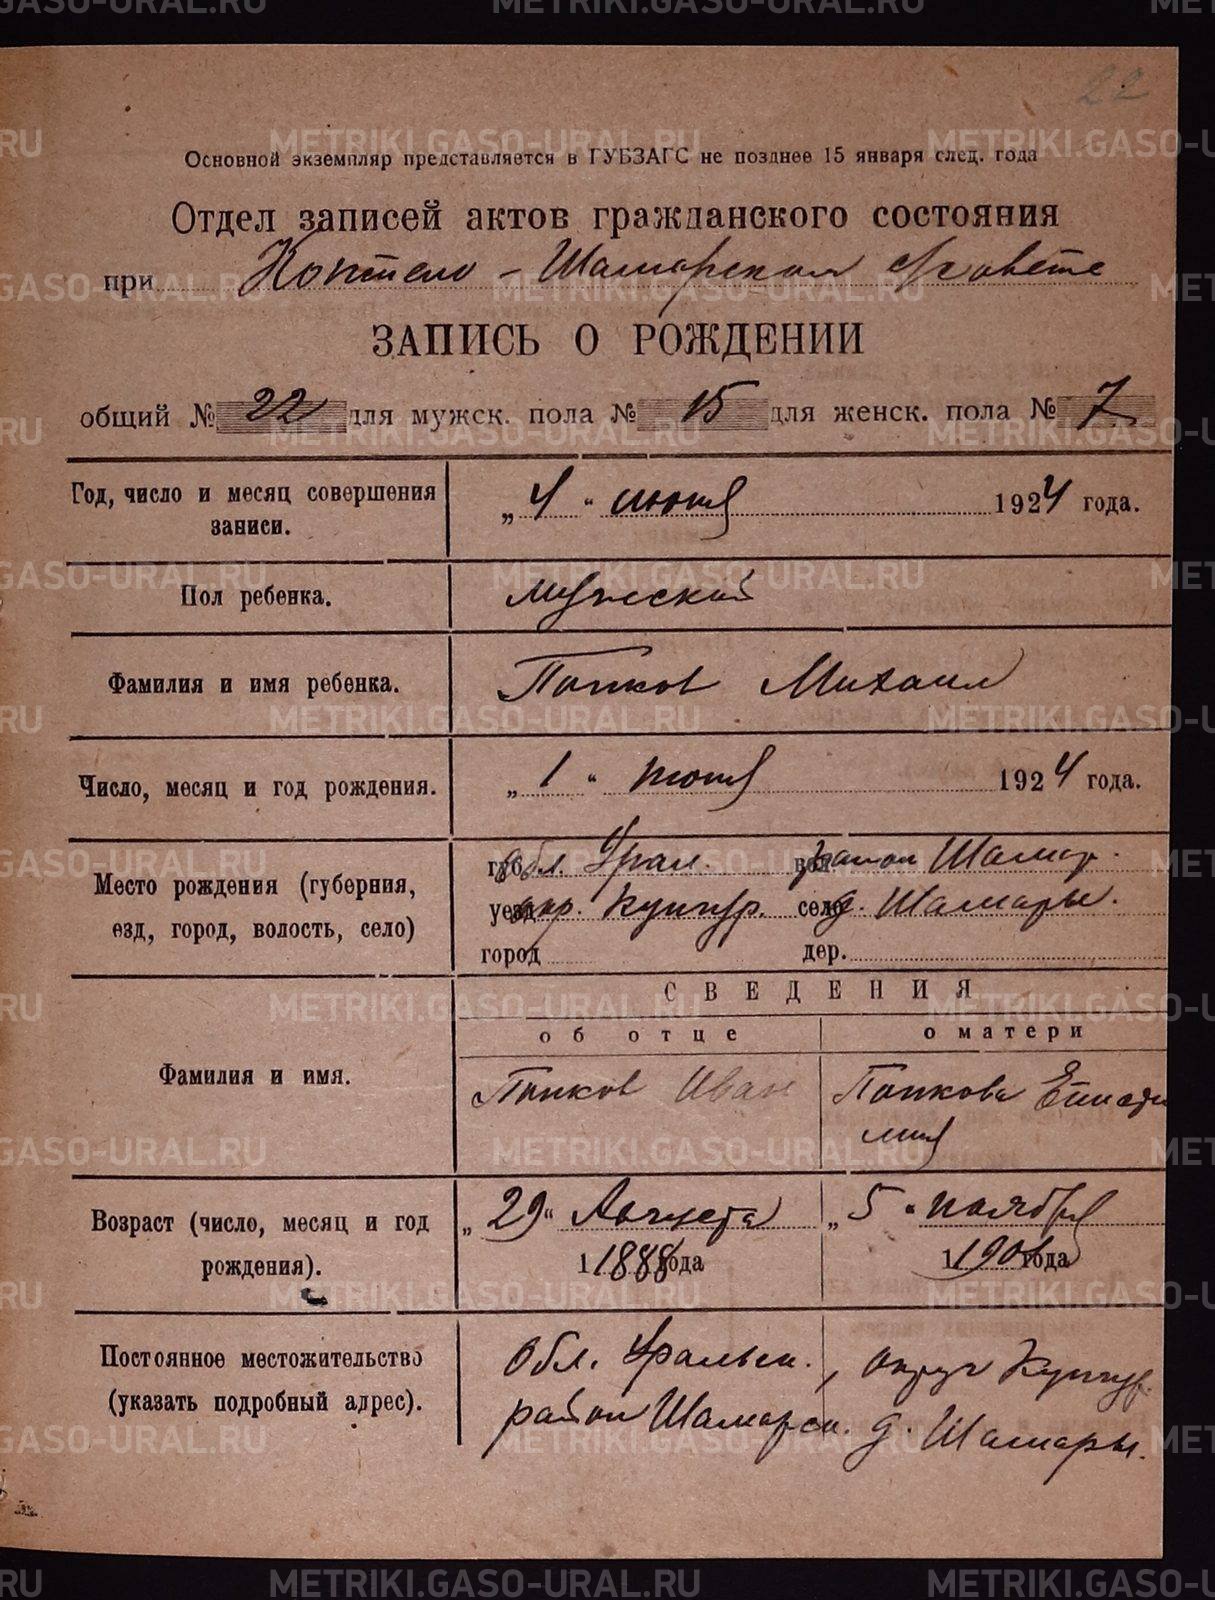 22
Основной экземпляр представляется в ГУБЗАГС не позднее 15 января след. года
Отдел записей актов гражданского состояния
при Коптело-Шамарском с/совете
ЗАПИСЬ О РОЖДЕНИИ
общий № 22 для мужск. пола № 15 для женск. пола № 7
Год, число и месяц совершения записи. „4“ июня 1924 года.
Пол ребенка. мужской
Фамилия и имя ребенка. Попков Михаил
Число, месяц и год рождения. „1“ июня 1924 года.
Место рождения (губерния, губ. обл. Урал. вол. район Шамар.
езд, город, волость, село) уезд окр. Кунгур. село д. Шамары.
город дер.
СВЕДЕНИЯ
об отце о матери
Фамилия и имя. Попков Иван Попкова Епистимия
Возраст (число, месяц и год „29“ Августа „5“ ноября
рождения). 1 1888 года 1 190 года
Постоянное местожительство Обл. Уральск., округ Кунгур.
(указать подробный адрес). район Шамарск. д. Шамары.
METRIKI.GASO-URAL.RU